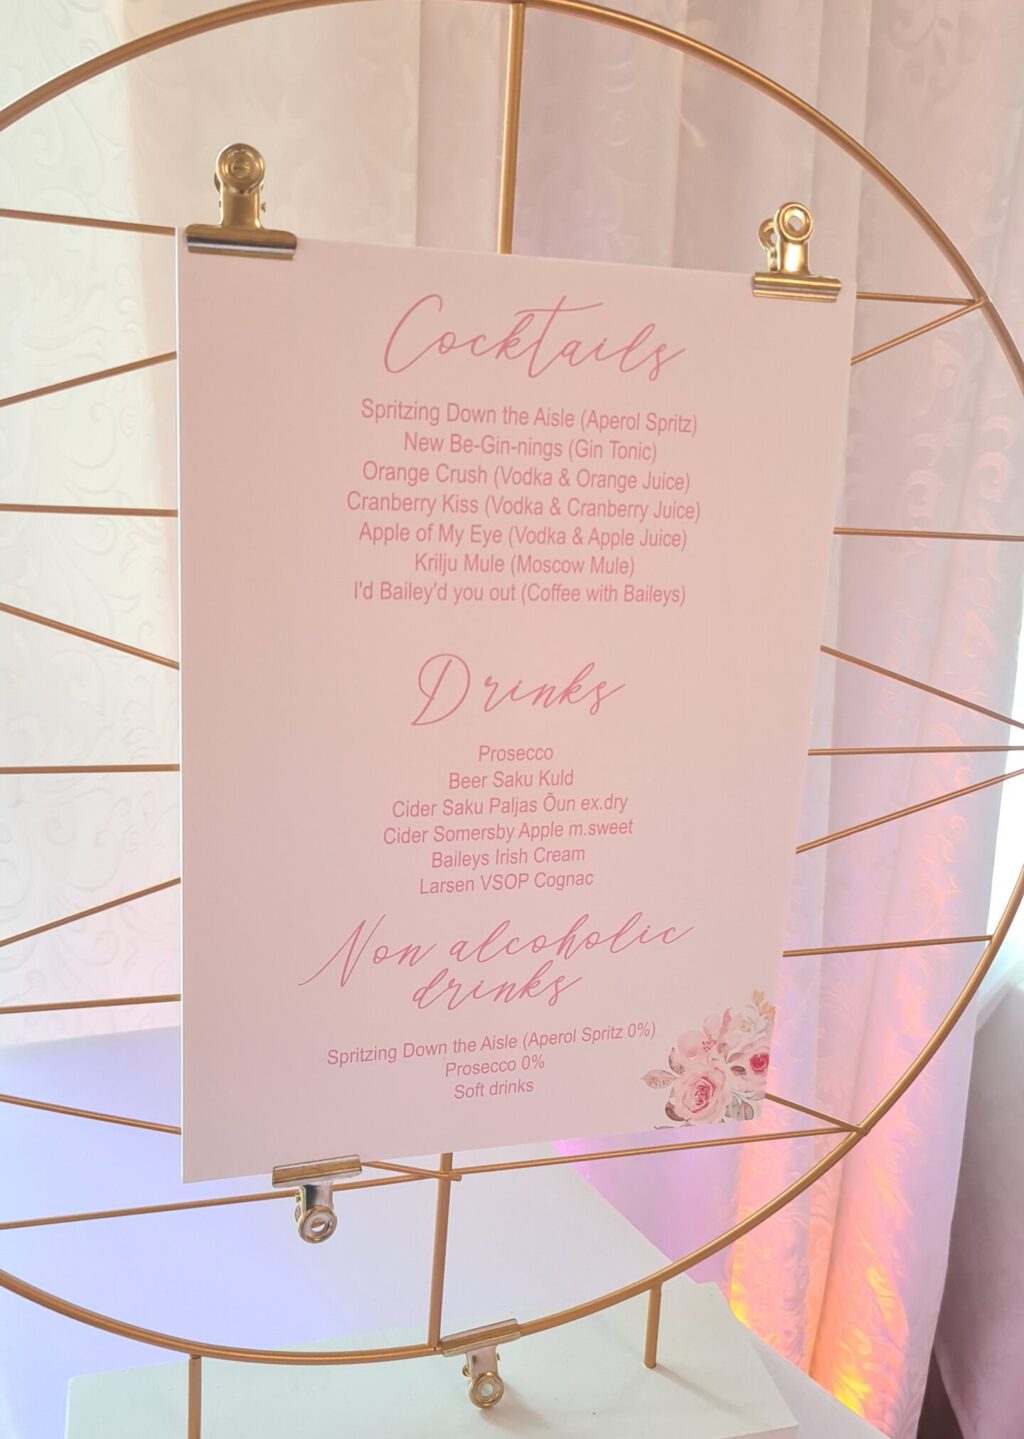 Cocktails
Spritzing Down the Aisle (Aperol Spritz)
New Be-Gin-nings (Gin Tonic)
Orange Crush (Vodka & Orange Juice)
Cranberry Kiss (Vodka & Cranberry Juice)
Apple of My Eye (Vodka & Apple Juice)
Krilju Mule (Moscow Mule)
I'd Bailey'd you out (Coffee with Baileys)
Drinks
Prosecco
Beer Saku Kuld
Cider Saku Paljas Õun ex.dry
Cider Somersby Apple m.sweet
Baileys Irish Cream
Larsen VSOP Cognac
Non alcoholic
drinks
Spritzing Down the Aisle (Aperol Spritz 0%)
Prosecco 0%
Soft drinks